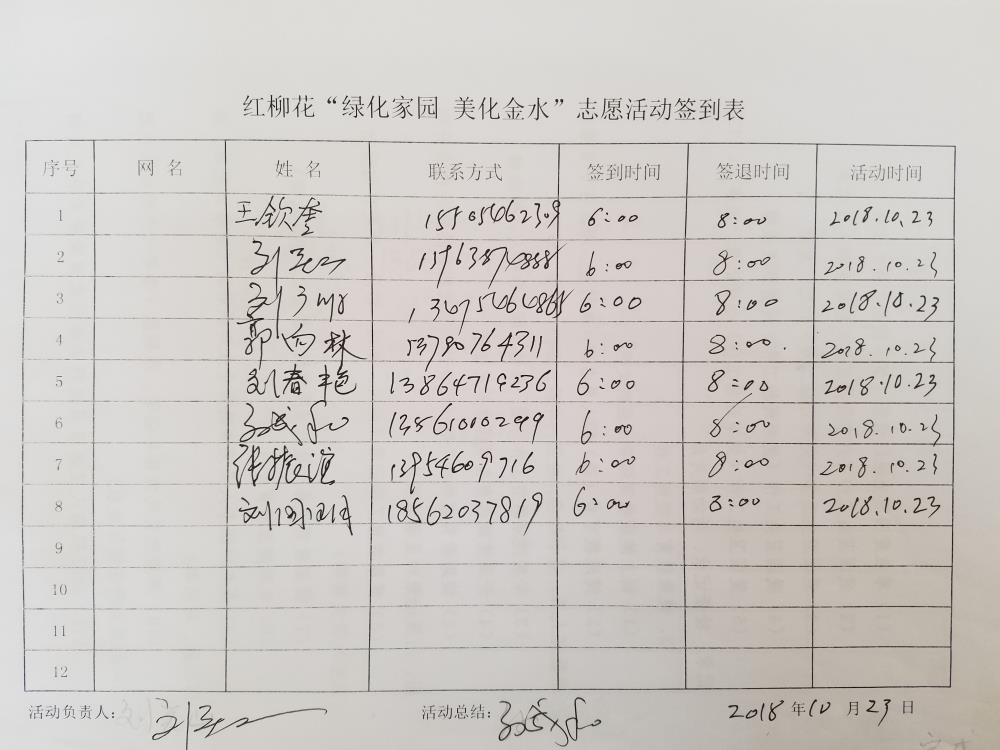 红柳花“绿化家园 美化金水”志愿活动签到表
序号 网 名 姓 名 联系方式 签到时间 签退时间 活动时间
1 王钦奎 15505462309 6:00 8:00 2018.10.23
2 6:00 8:00 2018.10.23
3 6:00 8:00 2018.10.23
4 郭向林 13780764311 6:00 8:00. 2018.10.23
5 刘春艳 13864719236 6:00 8:00 2018.10.23
6 13561000299 6:00 8:00 2018.10.23
7 张振谊 13954609716 6:00 8:00 2018.10.23
8 18562037819 6:00 8:00 2018.10.23
9
10
11
12
活动负责人: 活动总结: 2018 年 10 月 23 日